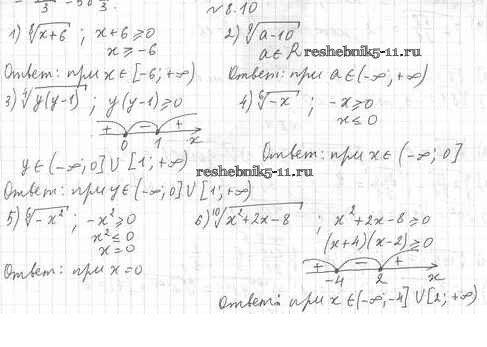 № 8.10
1) ⁶√(x+6) ; x+6 ≥ 0
x ≥ -6
Ответ: при x ∈ [-6; +∞)
2) √(a-10)
a ∈ R
reshebnik5-11.ru
Ответ: при a ∈ (-∞; +∞)
3) ⁴√(y(y-1)) ; y(y-1) ≥ 0
+ − +
0 1 x
y ∈ (-∞; 0] ∪ [1; +∞)
Ответ: при y ∈ (-∞; 0] ∪ [1; +∞)
4) ⁶√(-x) ; -x ≥ 0
x ≤ 0
Ответ: при x ∈ (-∞; 0]
reshebnik5-11.ru
5) √(-x²) ; -x² ≥ 0
x² ≤ 0
x = 0
Ответ: при x = 0
6) ¹⁰√(x²+2x-8) ; x²+2x-8 ≥ 0
(x+4)(x-2) ≥ 0
+ − +
-4 2 x
Ответ: при x ∈ (-∞; -4] ∪ [2; +∞)